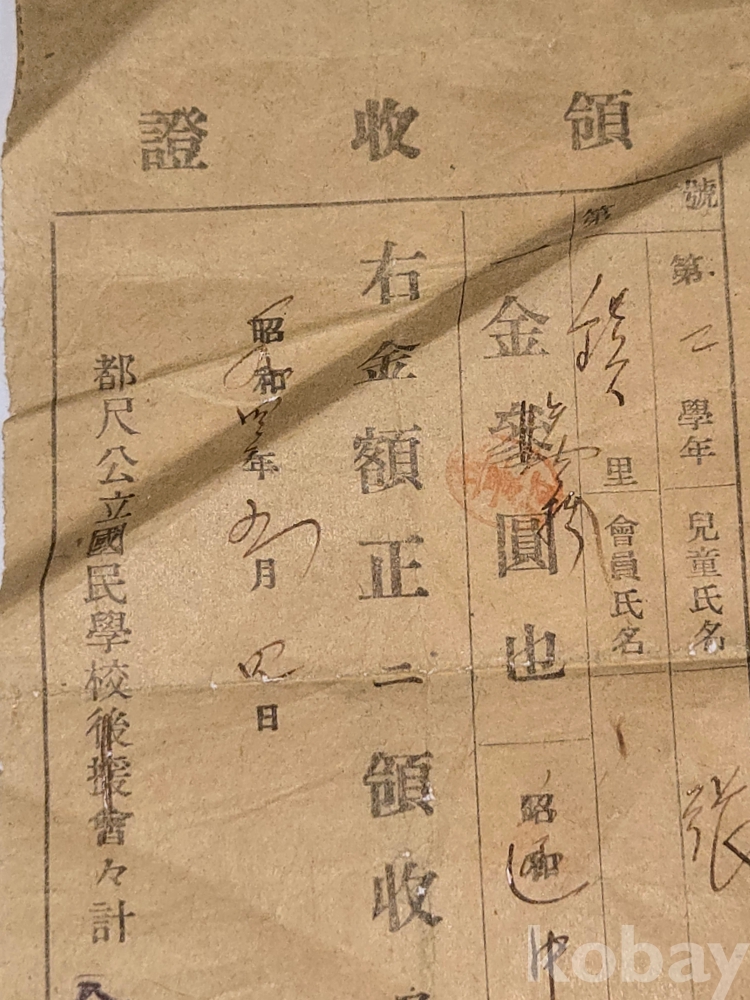 領收證
號
第二學年
兒童氏名
張
第
里
會員氏名
一金參圓也
昭和
中
右金額正ニ領收
昭和 年 九月 四日
都尺公立國民學校後援會々計
kobay